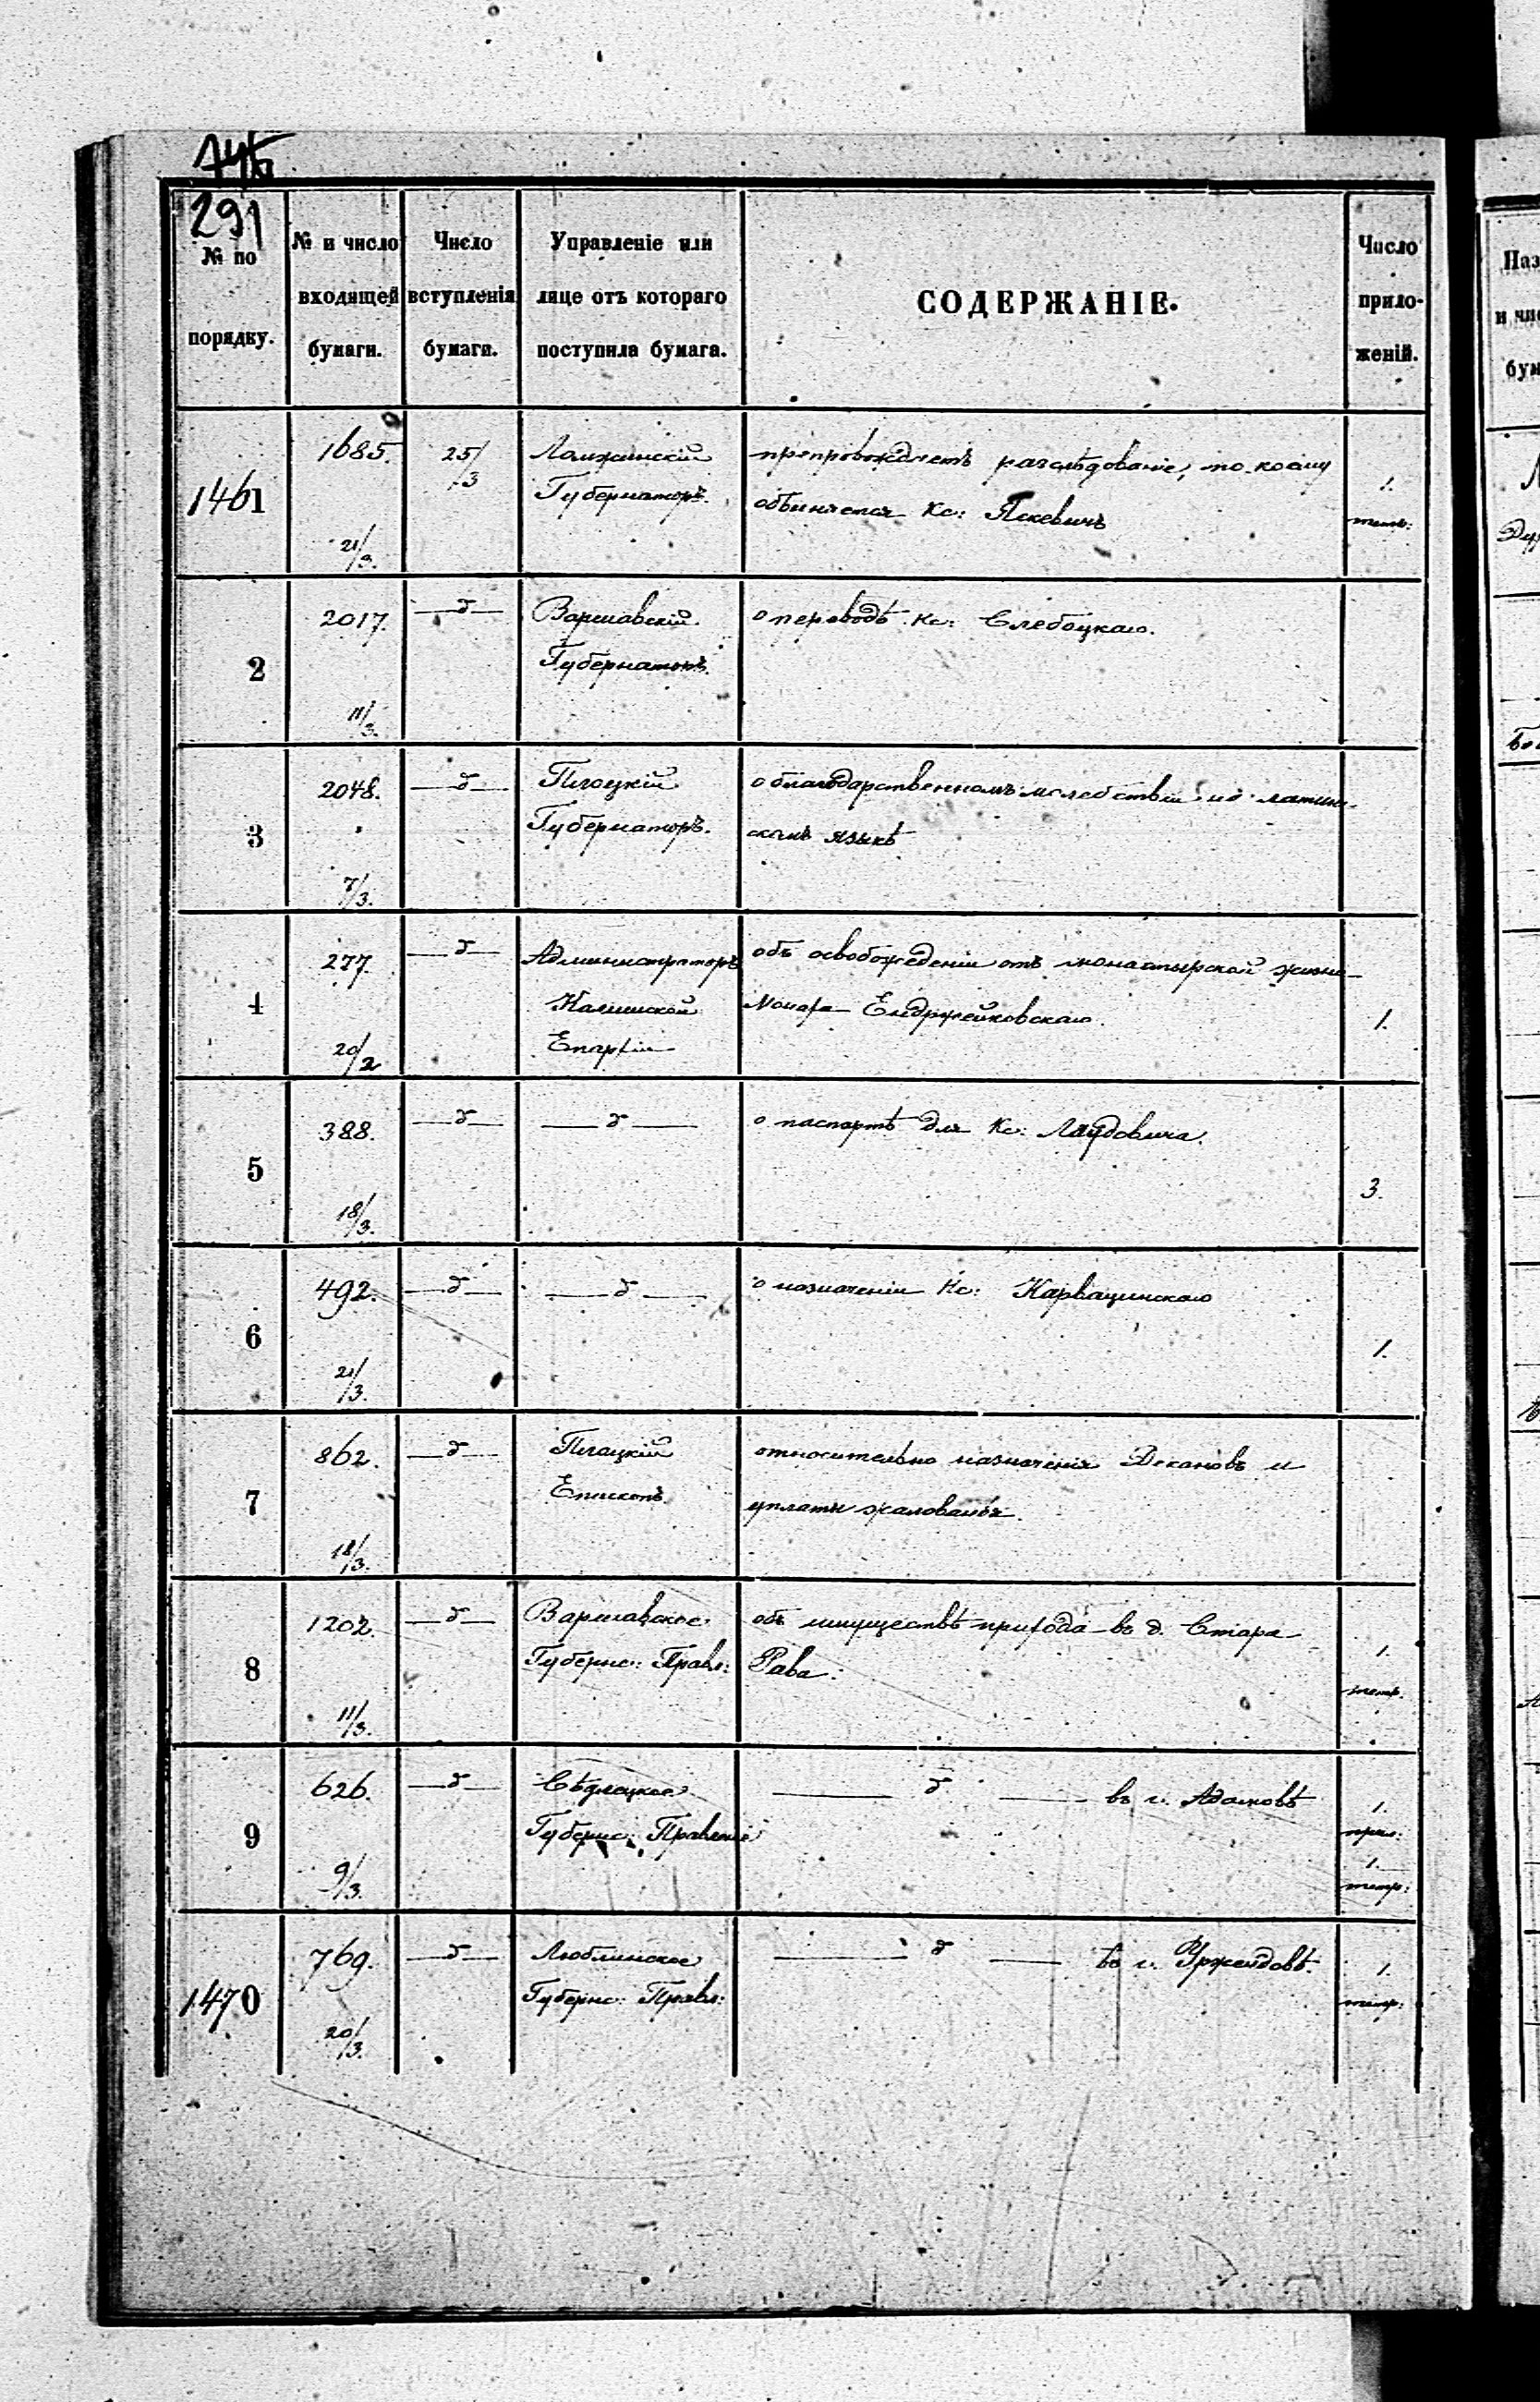 291
№ по
порядку.
№ и число
входящей
бумаги.
Число
вступленія
бумаги.
Управленіе или
лице отъ котораго
поступила бумага.
СОДЕРЖАНІЕ.
Число
прило-
женій.
1461
1685.
21/3.
25/3
Ломжинскій
Губернаторъ.
препровождаетъ разслѣдованіе, по коему
обвиняется Кс: Яскевичъ
1.
тетр:
2
2017.
11/3.
—д—
Варшавскій
Губернаторъ.
о переводѣ Кс: Слебоцкаго.
3
2048.
7/3.
—д—
Плоцкій
Губернаторъ.
о благодарственномъ молебствіи на латин-
скомъ языкѣ
4
277.
20/2
—д—
Администраторъ
Калишской
Епархіи
объ освобожденіи отъ монастырской жизни
Монаха Енджейковскаго.
1.
5
388.
18/3.
—д—
—д—
о паспортѣ для Кс: Лаудовича.
3.
6
492.
21/3.
—д—
—д—
о назначеніи Кс: Карвацинскаго
1.
7
862.
18/3.
—д—
Плоцкій
Епископъ.
относительно назначенія Декановъ и
уплаты жалованья.
8
1202.
11/3.
—д—
Варшавское
Губернс: Правл:
объ имуществѣ прихода въ д. Стара
Рава.
1.
тетр.
9
626.
9/3.
—д—
Сѣдлецкое
Губернс: Правленіе
—д— въ г. Адамовѣ
1.
прил:
1.
тетр:
1470
769.
20/3.
—д—
Люблинское
Губернс: Правл:
—д— въ г. Уржендовѣ.
1.
тетр: